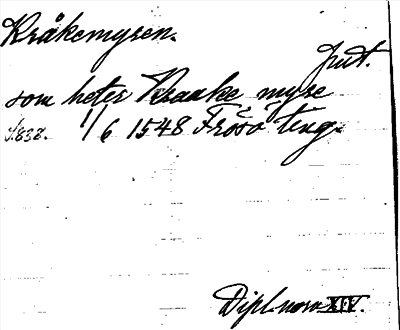 Kråkemyren.
Jmt.
som heter Kraake myre
s. 838. 1/6 1548 Frösö ting.
Dipl. norv XIV.